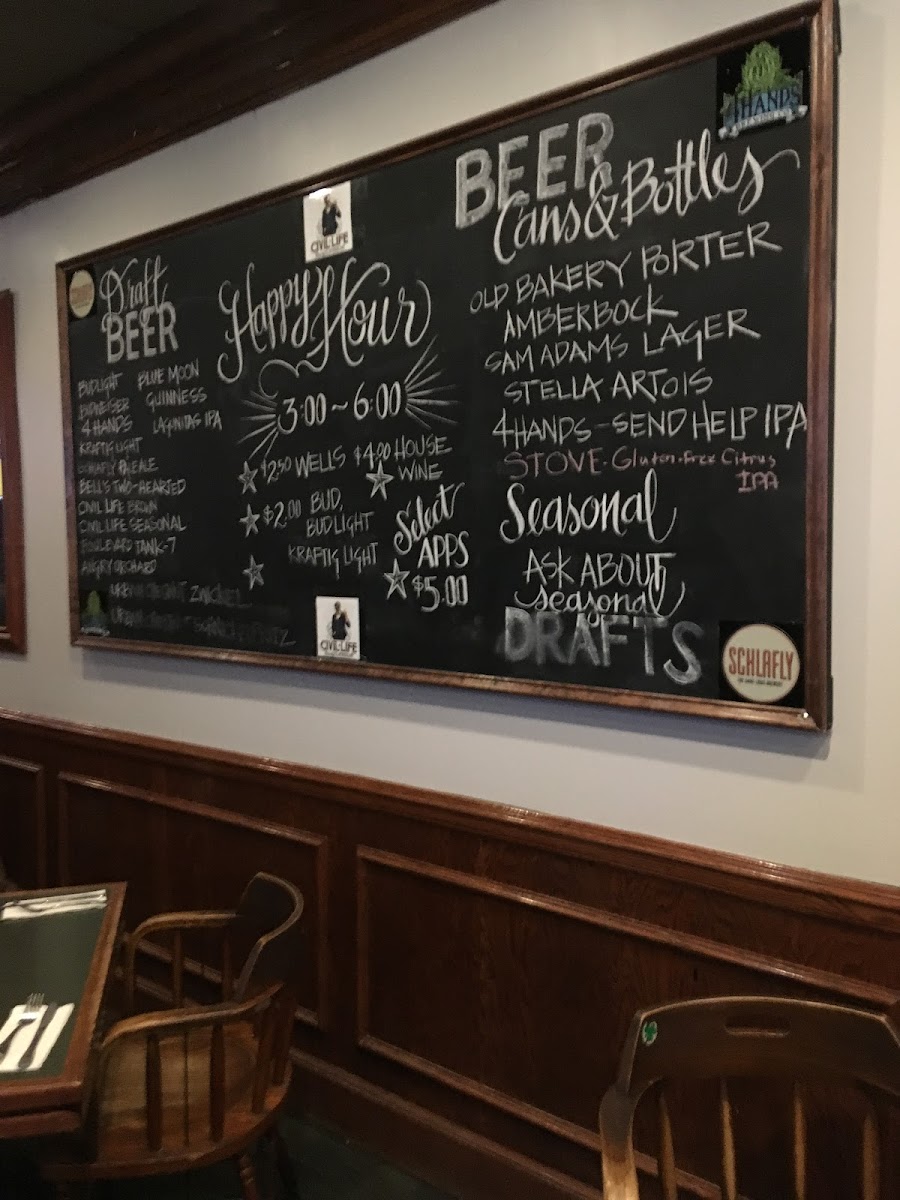 Draft
BEER
BUDLIGHT
BUDWEISER
4 HANDS
KRAFTIG LIGHT
SCHLAFLY PALE ALE
BELL'S TWO-HEARTED
CIVIL LIFE BROWN
CIVIL LIFE SEASONAL
BOULEVARD TANK-7
ANGRY ORCHARD
URBAN CHESTNUT ZWICKEL
URBAN CHESTNUT
BLUE MOON
GUINNESS
LAGUNITAS IPA
CIVIL LIFE
Happy Hour
3:00 ~ 6:00
$2.50 WELLS
$2.00 BUD,
BUD LIGHT
KRAFTIG LIGHT
$4.00 HOUSE
WINE
Select
APPS
$5.00
CIVIL LIFE
4HANDS
BREWING CO.
BEER
Cans & Bottles
OLD BAKERY PORTER
AMBERBOCK
SAM ADAMS LAGER
STELLA ARTOIS
4HANDS - SEND HELP IPA
STOVE - Gluten-Free Citrus
IPA
Seasonal
ASK ABOUT
seasonal
DRAFTS
SCHLAFLY